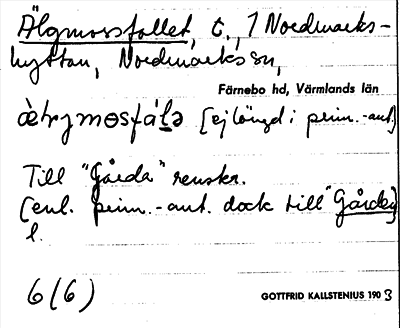 Älgmossfallet, t., 1 Nordmarks-
hyttan, Nordmarks sn,
Färnebo hd, Värmlands län
[ej längd i prim.-ant.]
Till "Gårda" renskr.
[enl. prim.-ant. dock till "Gårdy]
l.
6(6)
GOTTFRID KALLSTENIUS 1903